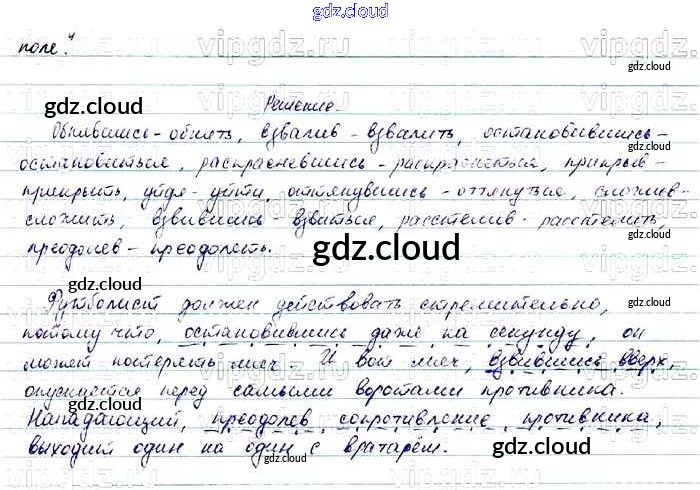 gdz.cloud
поле".
Решение.
Обнявшись - обнять, взвалив - взвалить, остановившись -
остановиться, раскрасневшись - раскраснеться, прикрыв -
прикрыть, уйдя - уйти, оттянувшись - оттянуться, сложив -
сложить, взвившись взвиться, расстелив - расстелить,
преодолев - преодолеть.
Футболист должен действовать стремительно,
потому что, остановившись даже на секунду, он
может потерять мяч. И вот мяч, взвившись вверх,
опускается перед самыми воротами противника.
Нападающий, преодолев сопротивление противника,
выходит один на один с вратарём.